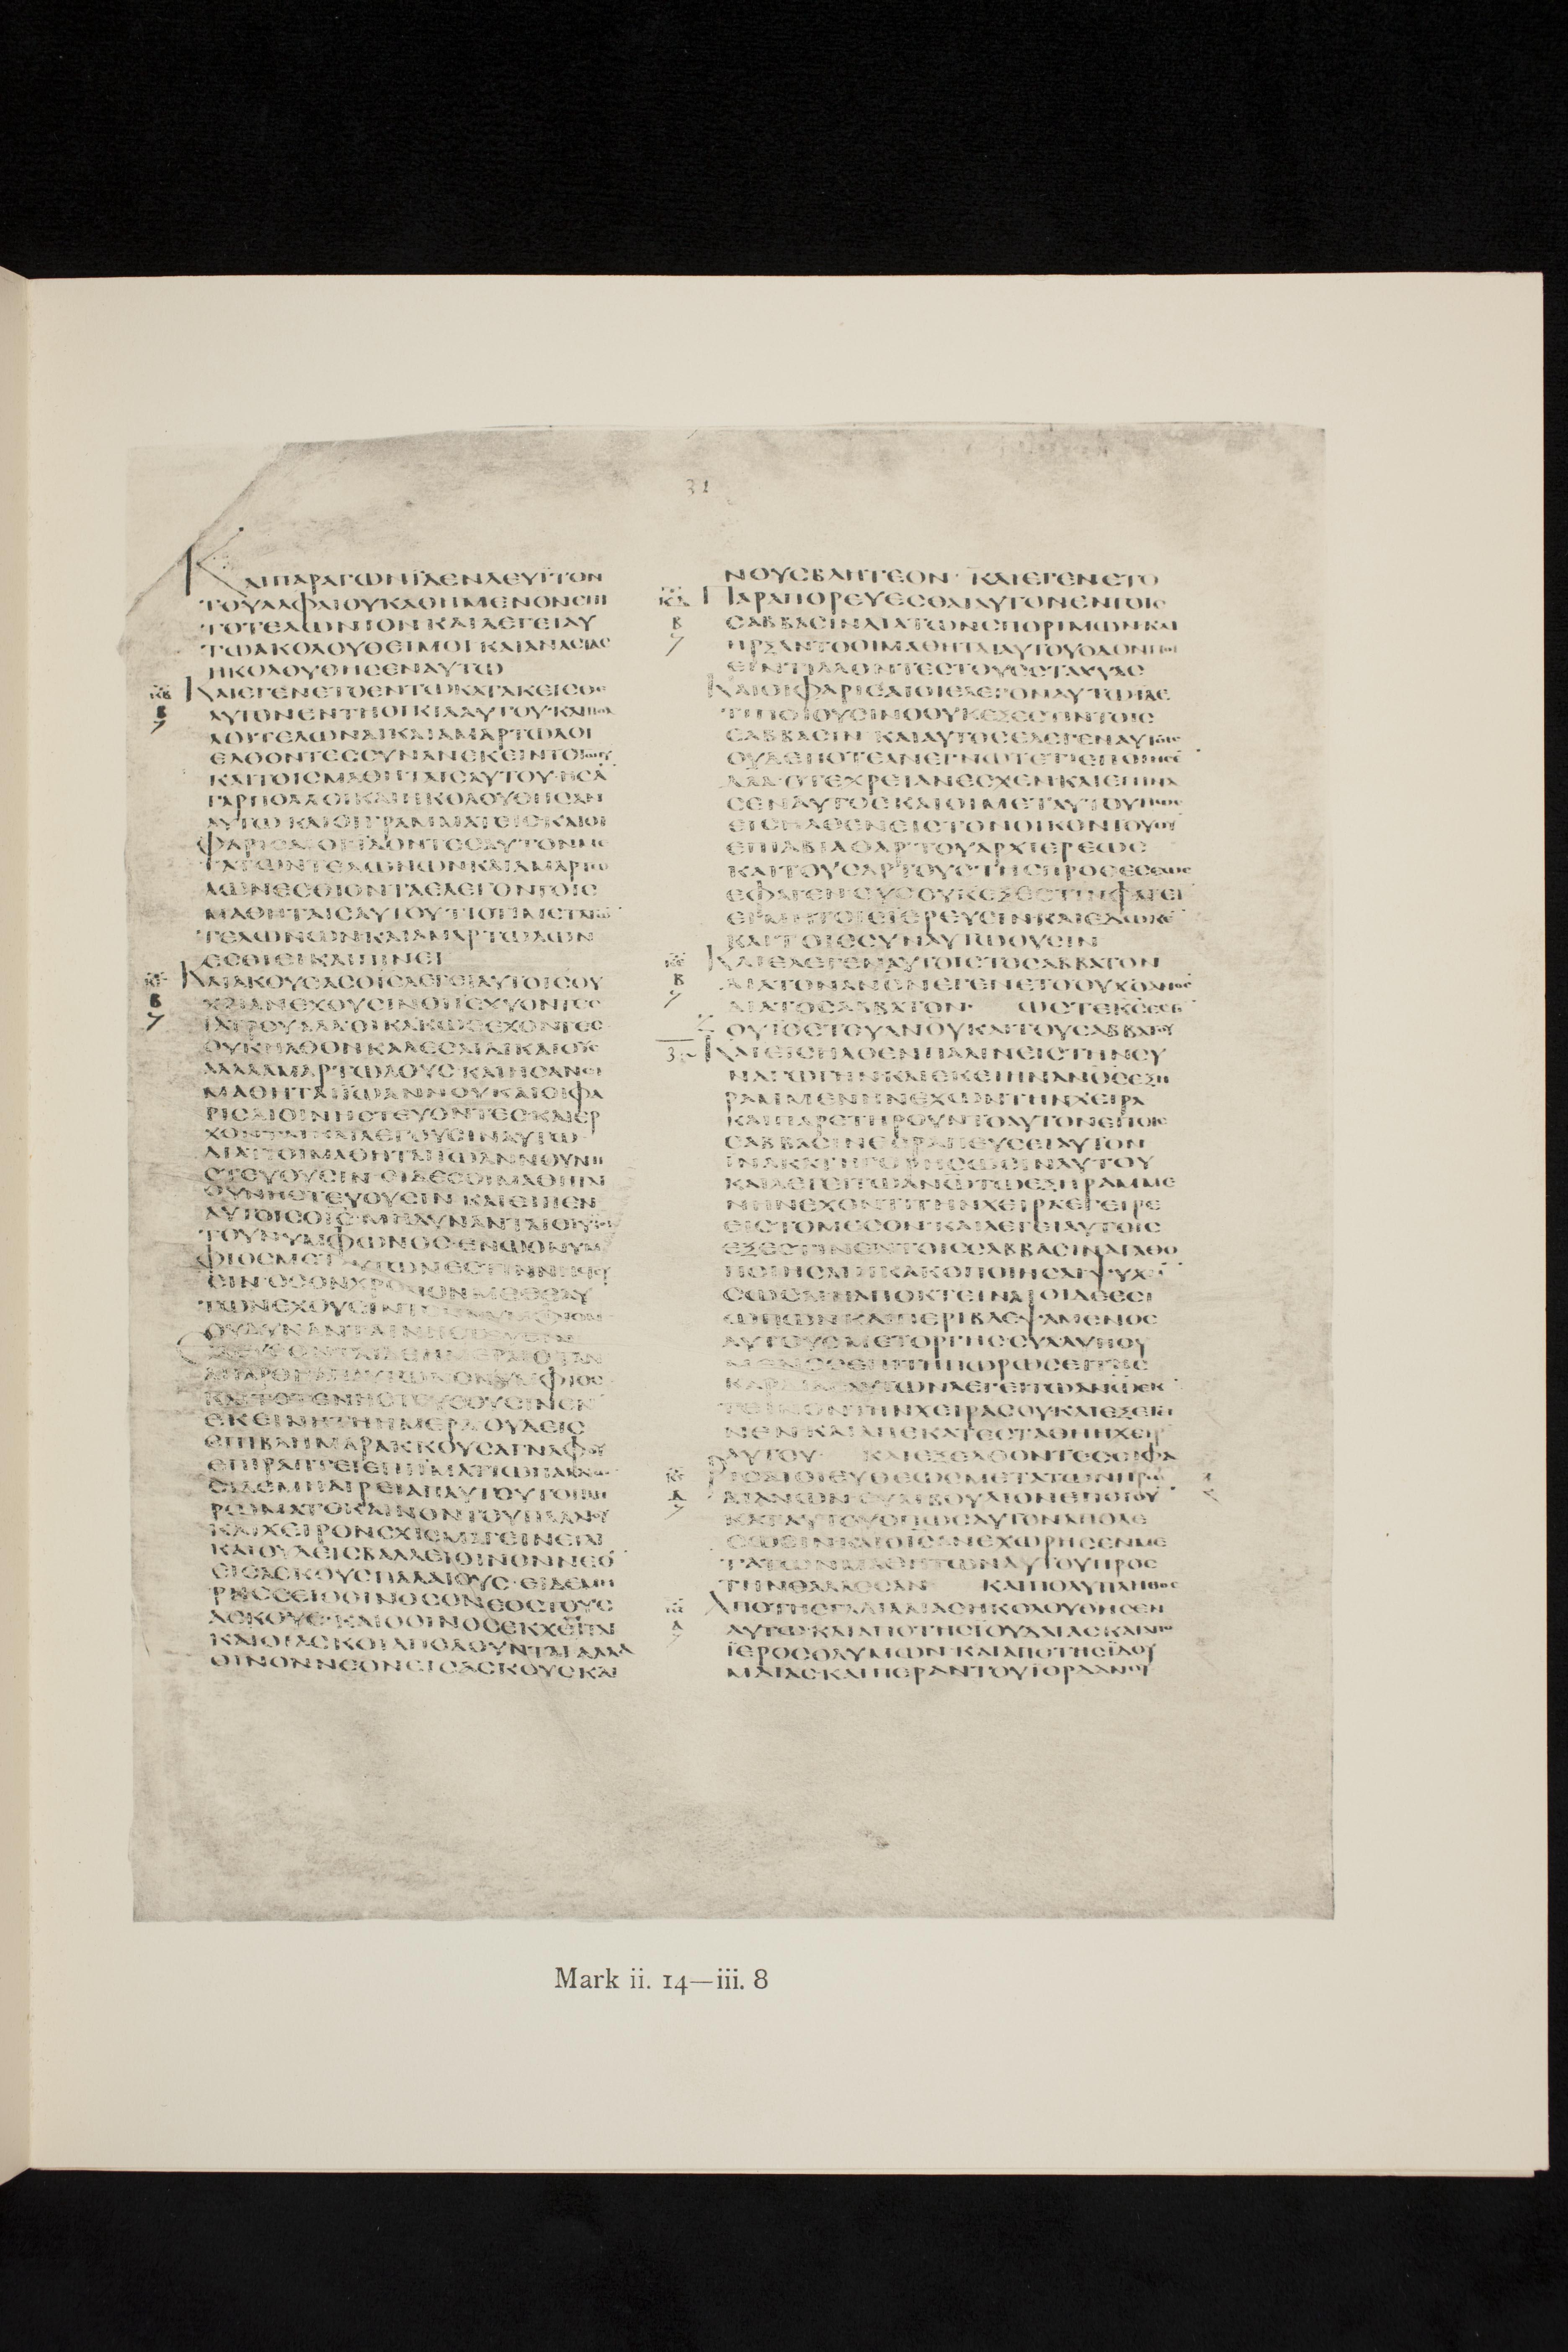 31
ΚΑΙΠΑΡΑΓΩΝΪΔΕΝΛΕΥΪΤΟΝ
ΤΟΥΑΛΦΑΙΟΥΚΑΘΗΜΕΝΟΝΕΠΙ
ΤΟΤΕΛΩΝΙΟΝΚΑΙΛΕΓΕΙΑΥ
ΤΩΑΚΟΛΟΥΘΕΙΜΟΙΚΑΙΑΝΑϹΤΑϹ
ΗΚΟΛΟΥΘΗϹΕΝΑΥΤΩ
ΚΑΙΕΓΕΝΕΤΟΕΝΤΩΚΑΤΑΚΕΙϹΘΕ
ΑΥΤΟΝΕΝΤΗΟΙΚΙΑΑΥΤΟΥ·ΚΑΙΠΟΛ
ΛΟΙΤΕΛΩΝΑΙΚΑΙΑΜΑΡΤΩΛΟΙ
ΕΛΘΟΝΤΕϹϹΥΝΑΝΕΚΕΙΝΤΟΤΩΙΥ
ΚΑΙΤΟΙϹΜΑΘΗΤΑΙϹΑΥΤΟΥ·ΗϹΑ̅
ΓΑΡΠΟΛΛΟΙΚΑΙΗΚΟΛΟΥΘΗϹΑΝ
ΑΥΤΩΚΑΙΟΙΓΡΑΜΜΑΤΕΙϹΚΑΙΟΙ
ΦΑΡΙϹΑΙΟΙΪΔΟΝΤΕϹΑΥΤΟΝΜΕ
ΤΑΤΩΝΤΕΛΩΝΩΝΚΑΙΑΜΑΡΤΩ
ΛΩΝΕϹΘΙΟΝΤΑΕΛΕΓΟΝΤΟΙϹ
ΜΑΘΗΤΑΙϹΑΥΤΟΥΤΙΟΤΙΜΕΤΑΤΩ̅
ΤΕΛΩΝΩΝΚΑΙΑΜΑΡΤΩΛΩΝ
ΕϹΘΙΕΙΚΑΙΠΙΝΕΙ
ΚΑΙΑΚΟΥϹΑϹΟΙ̅Ϲ̅ΛΕΓΕΙΑΥΤΟΙϹΟΥ
ΧΡΙΑΝΕΧΟΥϹΙΝΟΙΪϹΧΥΟΝΤΕϹ
ΙΑΤΡΟΥΑΛΛΟΙΚΑΚΩϹΕΧΟΝΤΕϹ
ΟΥΚΗΛΘΟΝΚΑΛΕϹΑΙΔΙΚΑΙΟΥϹ
ΑΛΛΑΑΜΑΡΤΩΛΟΥϹ·ΚΑΙΗϹΑΝΟΙ
ΜΑΘΗΤΑΙΪΩΑΝΝΟΥΚΑΙΟΙΦΑ
ΡΙϹΑΙΟΙΝΗϹΤΕΥΟΝΤΕϹ·ΚΑΙΕΡ
ΧΟΝΤΑΙΚΑΙΛΕΓΟΥϹΙΝΑΥΤΩ
ΔΙΑΤΙΟΙΜΑΘΗΤΑΙΪΩΑΝΝΟΥΝΗ
ϹΤΕΥΟΥϹΙΝ·ΟΙΔΕϹΟΙΜΑΘΗΤΑΙ
ΟΥΝΗϹΤΕΥΟΥϹΙΝΚΑΙΕΙΠΕΝ
ΑΥΤΟΙϹΟΙ̅Ϲ̅·ΜΗΔΥΝΑΝΤΑΙΟΙΥΙΟΙ
ΤΟΥΝΥΜΦΩΝΟϹ·ΕΝΩΟΝΥΜ
ΦΙΟϹΜΕΤΑΥΤΩΝΕϹΤΙΝΝΗϹΤΕΥ
ΕΙΝ·ΟϹΟΝΧΡΟΝΟΝΜΕΘΕΑΥ
ΤΩΝΕΧΟΥϹΙΝΤΟΝΝΥΜΦΙΟΝ
ΟΥΔΥΝΑΝΤΑΙΝΗϹΤΕΥΕΙΝ
ΕΛΕΥϹΟΝΤΑΙΔΕΗΜΕΡΑΙΟΤΑΝ
ΑΠΑΡΘΗΑΠΑΥΤΩΝΟΝΥΜΦΙΟϹ
ΚΑΙΤΟΤΕΝΗϹΤΕΥϹΟΥϹΙΝΕΝ
ΕΚΕΙΝΗΤΗΗΜΕΡΑΟΥΔΕΙϹ
ΕΠΙΒΛΗΜΑΡΑΚΚΟΥϹΑΓΝΑΦΟΥ
ΕΠΙΡΑΠΤΕΙΕΠΙΪΜΑΤΙΩΠΑΛΑΙΩ
ΕΙΔΕΜΗΑΙΡΕΙΑΠΑΥΤΟΥΤΟΠΛΗ
ΡΩΜΑΤΟΚΑΙΝΟΝΤΟΥΠΑΛΑΙΟΥ
ΚΑΙΧΕΙΡΟΝϹΧΙϹΜΑΓΕΙΝΕΤΑΙ
ΚΑΙΟΥΔΕΙϹΒΑΛΛΕΙΟΙΝΟΝΝΕΟ̅
ΕΙϹΑϹΚΟΥϹΠΑΛΑΙΟΥϹ·ΕΙΔΕΜΗ
ΡΗϹϹΕΙΟΟΙΝΟϹΟΝΕΟϹΤΟΥϹ
ΑϹΚΟΥϹ·ΚΑΙΟΟΙΝΟϹΕΚΧΕΙΤΑΙ
ΚΑΙΟΙΑϹΚΟΙΑΠΟΛΟΥΝΤΑΙΑΛΛΑ
ΟΙΝΟΝΝΕΟΝΕΙϹΑϹΚΟΥϹΚΑΙ
ΝΟΥϹΒΛΗΤΕΟΝ·ΚΑΙΕΓΕΝΕΤΟ
ΠΑΡΑΠΟΡΕΥΕϹΘΑΙΑΥΤΟΝΕΝΤΟΙϹ
ϹΑΒΒΑϹΙΝΔΙΑΤΩΝϹΠΟΡΙΜΩΝΚΑΙ
ΗΡΞΑΝΤΟΟΙΜΑΘΗΤΑΙΑΥΤΟΥΟΔΟΝΠΟΙ
ΕΙΝΤΙΛΛΟΝΤΕϹΤΟΥϹϹΤΑΧΥΑϹ
ΚΑΙΟΙΦΑΡΙϹΑΙΟΙΕΛΕΓΟΝΑΥΤΩΙΔΕ
ΤΙΠΟΙΟΥϹΙΝΟΟΥΚΕΞΕϹΤΙΝΤΟΙϹ
ϹΑΒΒΑϹΙΝΚΑΙΑΥΤΟϹΕΛΕΓΕΝΑΥΤΟΙϹ
ΟΥΔΕΠΟΤΕΑΝΕΓΝΩΤΕΤΙΕΠΟΙΗϹΕ̅
ΔΑΔ·ΟΤΕΧΡΕΙΑΝΕϹΧΕΝΚΑΙΕΠΙΝΑ
ϹΕΝΑΥΤΟϹΚΑΙΟΙΜΕΤΑΥΤΟΥΠΩϹ
ΕΙϹΗΛΘΕΝΕΙϹΤΟΝΟΙΚΟΝΤΟΥΘΥ
ΕΠΙΑΒΙΑΘΑΡΤΟΥΑΡΧΙΕΡΕΩϹ
ΚΑΙΤΟΥϹΑΡΤΟΥϹΤΗϹΠΡΟΘΕϹΕΩϹ
ΕΦΑΓΕΝΟΥϹΟΥΚΕΞΕϹΤΙΝΦΑΓΕΙ
ΕΙΜΗΤΟΙϹΪΕΡΕΥϹΙΝ·ΚΑΙΕΔΩΚΕ̅
ΚΑΙΤΟΙϹϹΥΝΑΥΤΩΟΥϹΙΝ
ΚΑΙΕΛΕΓΕΝΑΥΤΟΙϹΤΟϹΑΒΒΑΤΟΝ
ΔΙΑΤΟΝΑΝ̅Ο̅Ν̅ΕΓΕΝΕΤΟΟΥΧΟΑΝΟϹ
ΔΙΑΤΟϹΑΒΒΑΤΟΝ· ΩϹΤΕΚϹΕϹΤΙ
ΟΥΙΟϹΤΟΥΑΝΟΥΚΑΙΤΟΥϹΑΒΒΑΤΟΥ
ΚΑΙΕΙϹΗΛΘΕΝΠΑΛΙΝΕΙϹΤΗΝϹΥ
ΝΑΓΩΓΗΝΚΑΙΕΚΕΙΗΝΑΝΟϹΕΞΗ
ΡΑΜΜΕΝΗΝΕΧΩΝΤΗΝΧΕΙΡΑ
ΚΑΙΠΑΡΕΤΗΡΟΥΝΤΟΑΥΤΟΝΕΙΤΟΙϹ
ϹΑΒΒΑϹΙΝΘΕΡΑΠΕΥϹΕΙΑΥΤΟΝ
ΙΝΑΚΑΤΗΓΟΡΗϹΩϹΙΝΑΥΤΟΥ
ΚΑΙΛΕΓΕΙΤΩΑΝΩΤΩΕΞΗΡΑΜΜΕ
ΝΗΝΕΧΟΝΤΙΤΗΝΧΕΙΡΑΕΓΕΙΡΕ
ΕΙϹΤΟΜΕϹΟΝ·ΚΑΙΛΕΓΕΙΑΥΤΟΙϹ
ΕΞΕϹΤΙΝΕΝΤΟΙϹϹΑΒΒΑϹΙΝΑΓΑΘΟ
ΠΟΙΗϹΑΙΗΚΑΚΟΠΟΙΗϹΑΙΨΥΧΗ̅
ϹΩϹΑΙΗΑΠΟΚΤΕΙΝΑΙΟΙΔΕΕϹΙ
ΩΠΩΝΚΑΙΠΕΡΙΒΛΕΨΑΜΕΝΟϹ
ΑΥΤΟΥϹΜΕΤΟΡΓΗϹϹΥΛΛΥΠΟΥ
ΜΕΝΟϹΕΠΙΤΗΠΩΡΩϹΕΙΤΗϹ
ΚΑΡΔΙΑϹΑΥΤΩΝΛΕΓΕΙΤΩΑΝΩΕΚ
ΤΕΙΝΟΝΤΗΝΧΕΙΡΑϹΟΥΚΑΙΕΞΕΤΙ
ΝΕΝΚΑΙΑΠΕΚΑΤΕϹΤΑΘΗΗΧΕΙΡ
ΑΥΤΟΥ· ΚΑΙΕΞΕΛΘΟΝΤΕϹΟΙΦΑ
ΡΙϹΑΙΟΙΕΥΘΕΩϹΜΕΤΑΤΩΝΗΡΩ
ΔΙΑΝΩΝϹΥΜΒΟΥΛΙΟΝΕΠΟΙΟΥ̅
ΚΑΤΑΥΤΟΥΟΠΩϹΑΥΤΟΝΑΠΟΛΕ
ϹΩϹΙΝΚΑΙΟΙ̅Ϲ̅ΑΝΕΧΩΡΗϹΕΝΜΕ
ΤΑΤΩΝΜΑΘΗΤΩΝΑΥΤΟΥΠΡΟϹ
ΤΗΝΘΑΛΑϹϹΑΝ ΚΑΙΠΟΛΥΠΛΗΘΟϹ
ΑΠΟΤΗϹΓΑΛΙΛΑΙΑϹΗΚΟΛΟΥΘΗϹΕΝ
ΑΥΤΩ·ΚΑΙΑΠΟΤΗϹΪΟΥΔΑΙΑϹΚΑΙΑΠΟ
ΪΕΡΟϹΟΛΥΜΩΝΚΑΙΑΠΟΤΗϹΪΔΟΥ
ΜΑΙΑϹ·ΚΑΙΠΕΡΑΝΤΟΥΪΟΡΔΑΝΟΥ
Mark ii. 14—iii. 8